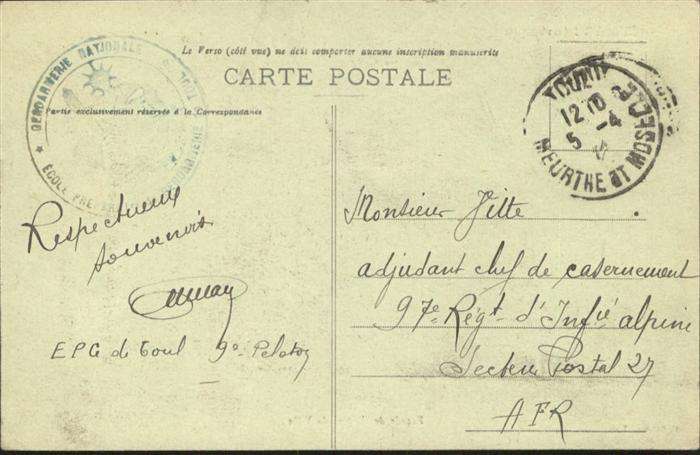 Le Verso (côté vue) ne doit comporter aucune inscription manuscrite
CARTE POSTALE
Partie exclusivement réservée à la Correspondance
GENDARMERIE NATIONALE
ÉCOLE PRÉPARATOIRE
TOUL
12 10
5 -4
MEURTHE ET MOSELLE
Respectueux
souvenirs
EPG de Toul 9e Peloton
Monsieur Fitte
adjudant chef de casernement
97e Régt d'Infie alpine
Secteur Postal 27
AFR